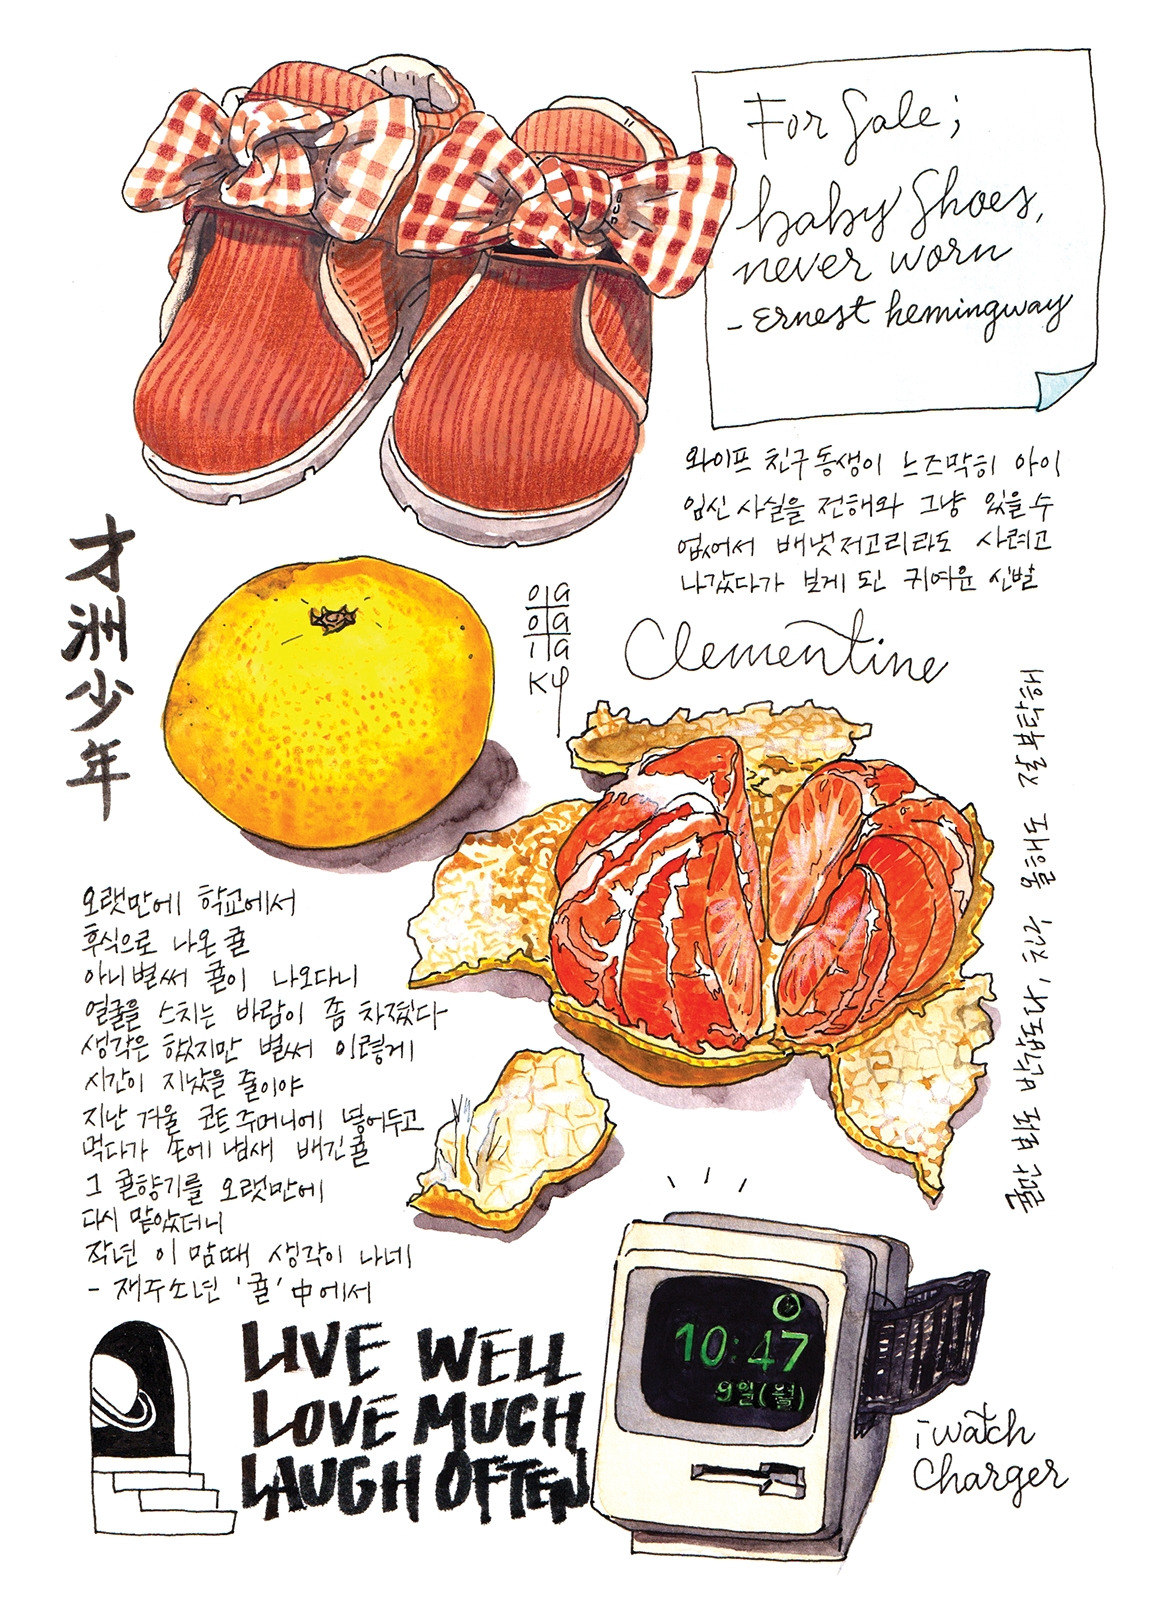 For Sale;
baby Shoes,
never worn
- Ernest hemingway
와이프 친구 동생이 느즈막히 아이
임신 사실을 전해와 그냥 있을 수
없어서 배냇저고리라도 사려고
나갔다가 보게 된 귀여운 신발
才洲少年
Clementine
오랫만에 학교에서
후식으로 나온 귤
아니 벌써 귤이 나오다니
얼굴을 스치는 바람이 좀 차졌다
생각은 했지만 벌써 이렇게
시간이 지났을 줄이야
지난 겨울 코트 주머니에 넣어두고
먹다가 손에 냄새 배긴 귤
그 귤향기를 오랫만에
다시 맡았더니
작년 이 맘때 생각이 나네
- 재주소년 '귤' 中에서
LIVE WELL
LOVE MUCH
LAUGH OFTEN
10:47
9일(월)
iwatch
Charger